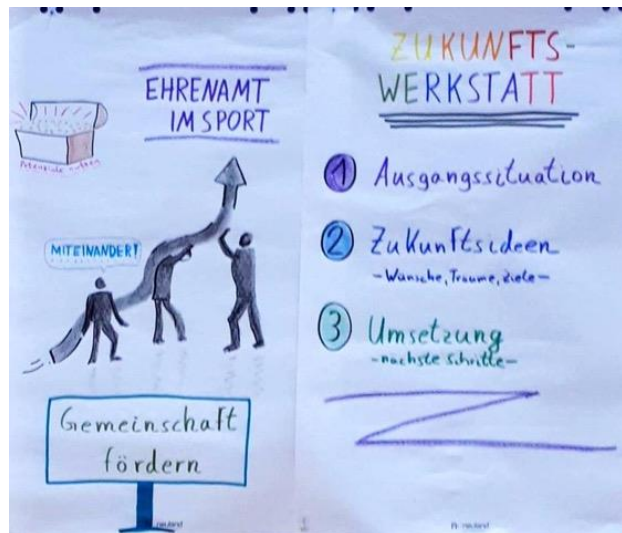 EHRENAMT
IM SPORT
Potenziale nutzen
MITEINANDER!
Gemeinschaft
fördern
neuland
ZUKUNFTS-
WERKSTATT
1 Ausgangssituation
2 Zukunftsideen
-Wünsche, Träume, Ziele-
3 Umsetzung
-nächste Schritte-
neuland